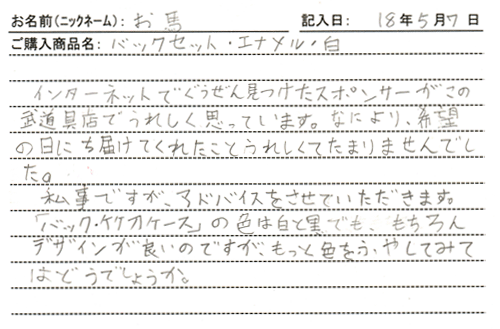 お名前(ニックネーム): お馬 記入日: 18年5月7日
ご購入商品名: バックセット・エナメル・白
インターネットでぐうぜん見つけたスポンサーがこの
武道具店でうれしく思っています。なにより、希望
の日にち届けてくれたことうれしくてたまりませんでし
た。
私事ですが、アドバイスをさせていただきます。
「バック・ケースの色は白と黒でも、もちろん
デザインが良いのですが、もっと色をふやしてみて
はどうでしょうか。